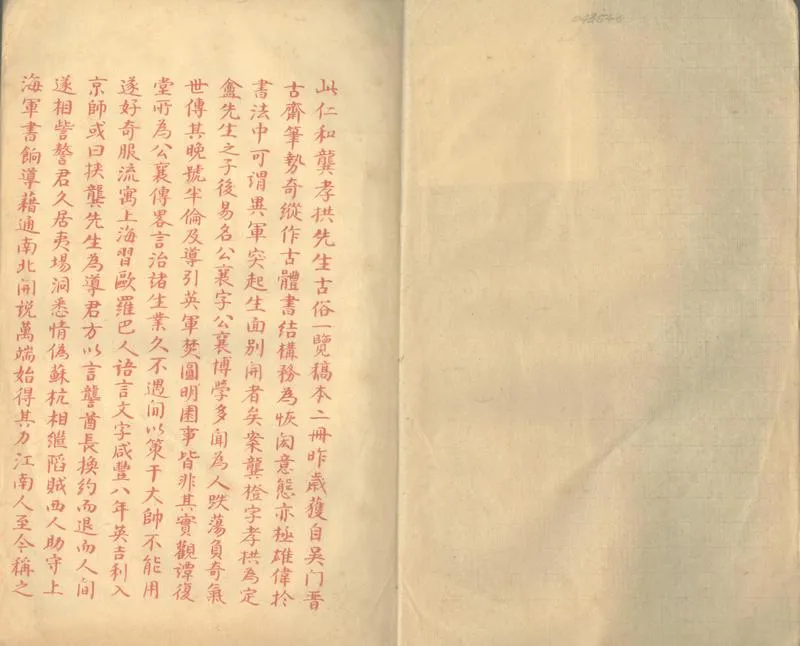 此仁和龔孝拱先生古俗一覽稿本二冊昨歲獲自吳门晋
古齋筆勢奇縱作古體書結構務為恢闳意態亦極雄偉扵
書法中可謂異軍突起生面别開者矣案龔橙字孝拱為定
盦先生之子後易名公襄字公襄博學多聞為人跌蕩負奇氣
世傳其晚號半倫及導引英軍焚圓明園事皆非其實觀譚復
堂所為公襄傳畧言治諸生業久不遇间以策干大帥不能用
遂好奇服流寓上海習歐羅巴人语言文字咸豐八年英吉利入
京師或曰挾龔先生為導君方以言讋酋長換約而退而人间
遂相訾謷君久居夷場洞悉情偽蘇杭相繼陷賊西人助守上
海軍書餉導藉通南北开説萬端始得其力江南人至今稱之